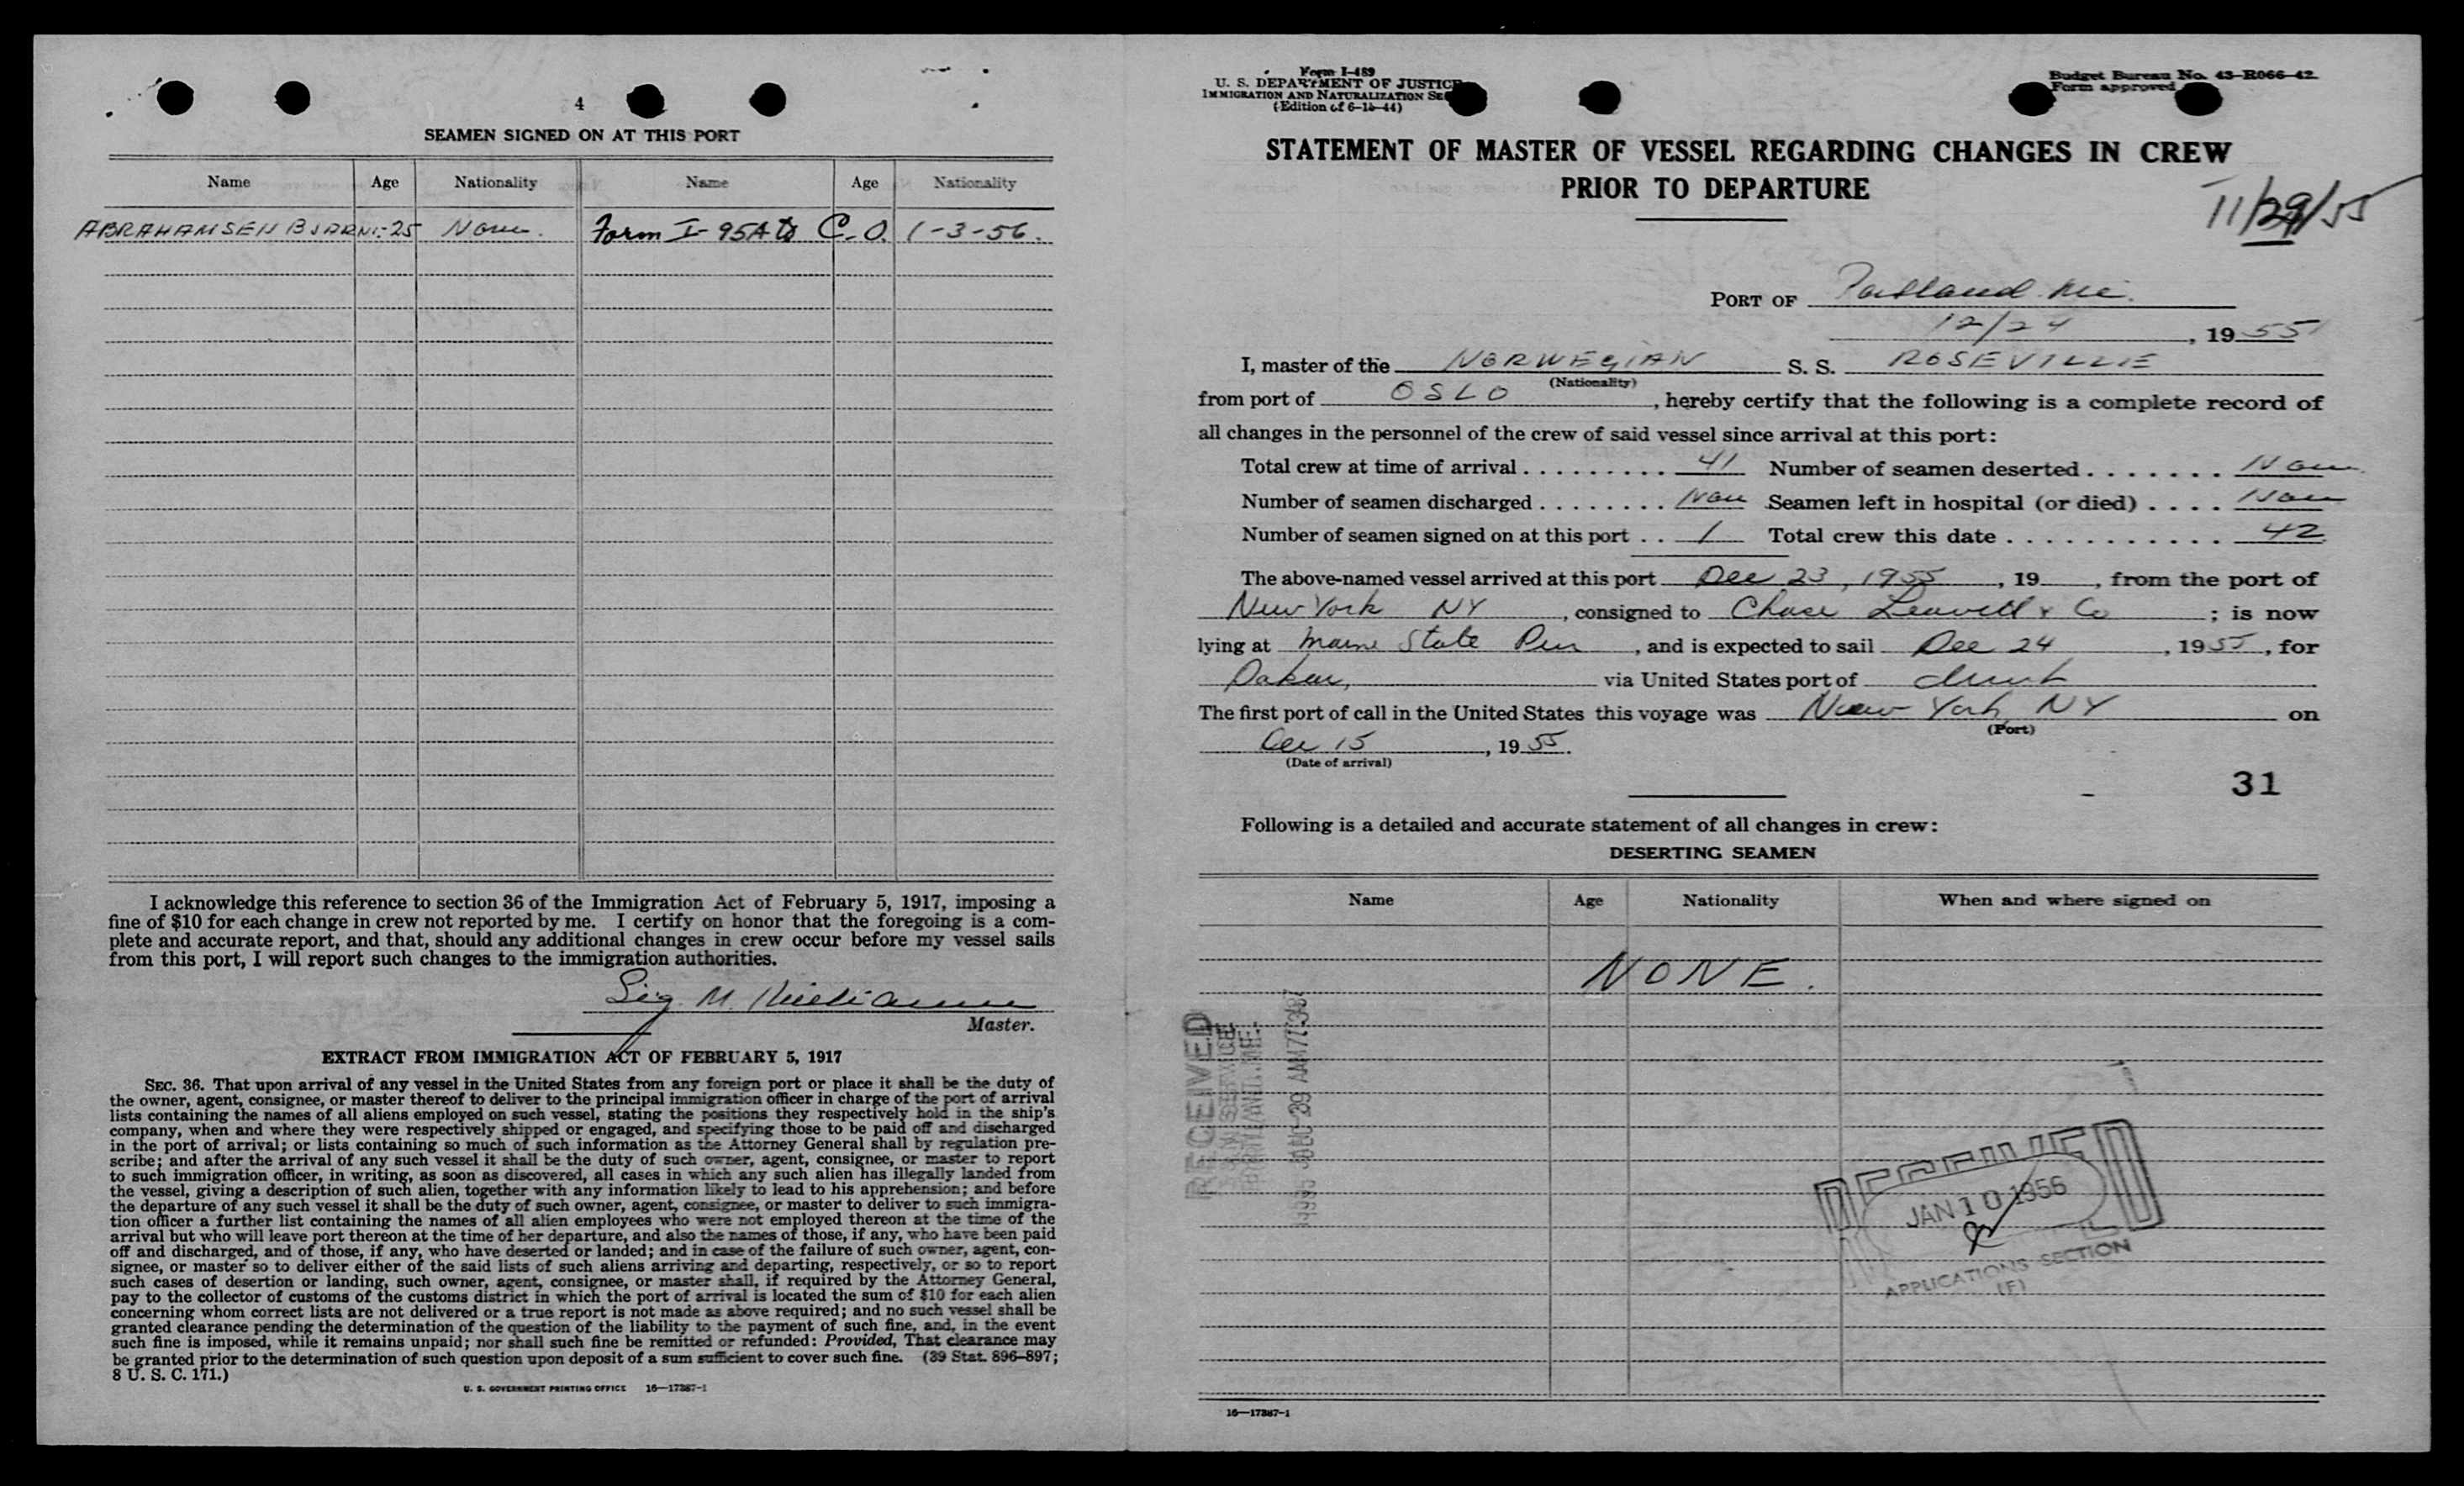 4
SEAMEN SIGNED ON AT THIS PORT
Name Age Nationality Name Age Nationality
ABRAHAMSEN BJARNE-25 Norw. Form I-95A to C.O. 1-3-56.
I acknowledge this reference to section 36 of the Immigration Act of February 5, 1917, imposing a
fine of $10 for each change in crew not reported by me. I certify on honor that the foregoing is a com-
plete and accurate report, and that, should any additional changes in crew occur before my vessel sails
from this port, I will report such changes to the immigration authorities.
Sig. M.
Master.
EXTRACT FROM IMMIGRATION ACT OF FEBRUARY 5, 1917
SEC. 36. That upon arrival of any vessel in the United States from any foreign port or place it shall be the duty of
the owner, agent, consignee, or master thereof to deliver to the principal immigration officer in charge of the port of arrival
lists containing the names of all aliens employed on such vessel, stating the positions they respectively hold in the ship's
company, when and where they were respectively shipped or engaged, and specifying those to be paid off and discharged
in the port of arrival; or lists containing so much of such information as the Attorney General shall by regulation pre-
scribe; and after the arrival of any such vessel it shall be the duty of such owner, agent, consignee, or master to report
to such immigration officer, in writing, as soon as discovered, all cases in which any such alien has illegally landed from
the vessel, giving a description of such alien, together with any information likely to lead to his apprehension; and before
the departure of any such vessel it shall be the duty of such owner, agent, consignee, or master to deliver to such immigra-
tion officer a further list containing the names of all alien employees who were not employed thereon at the time of the
arrival but who will leave port thereon at the time of her departure, and also the names of those, if any, who have been paid
off and discharged, and of those, if any, who have deserted or landed; and in case of the failure of such owner, agent, con-
signee, or master so to deliver either of the said lists of such aliens arriving and departing, respectively, or so to report
such cases of desertion or landing, such owner, agent, consignee, or master shall, if required by the Attorney General,
pay to the collector of customs of the customs district in which the port of arrival is located the sum of $10 for each alien
concerning whom correct lists are not delivered or a true report is not made as above required; and no such vessel shall be
granted clearance pending the determination of the question of the liability to the payment of such fine, and, in the event
such fine is imposed, while it remains unpaid; nor shall such fine be remitted or refunded: Provided, That clearance may
be granted prior to the determination of such question upon deposit of a sum sufficient to cover such fine. (39 Stat. 896-897;
8 U. S. C. 171.)
U. S. GOVERNMENT PRINTING OFFICE 16—17387-1
Form I-489
U. S. DEPARTMENT OF JUSTICE
IMMIGRATION AND NATURALIZATION SE
(Edition of 6-15-44)
Budget Bureau No. 43-R066-42
Form approved
STATEMENT OF MASTER OF VESSEL REGARDING CHANGES IN CREW
PRIOR TO DEPARTURE
11/29/55
PORT OF Portland Me.
12/24, 1955
I, master of the NORWEGIAN S. S. ROSEVILLE
(Nationality)
from port of OSLO, hereby certify that the following is a complete record of
all changes in the personnel of the crew of said vessel since arrival at this port:
Total crew at time of arrival . . . . . . . . . 41 Number of seamen deserted . . . . . . . None
Number of seamen discharged . . . . . . . . None Seamen left in hospital (or died) . . . . None
Number of seamen signed on at this port . . 1 Total crew this date . . . . . . . . . . . . 42
The above-named vessel arrived at this port Dec 23, 1955, 19 , from the port of
New York NY, consigned to Chase Leavitt & Co; is now
lying at Maine State Pier, and is expected to sail Dec 24, 1955, for
Dakar, via United States port of direct
The first port of call in the United States this voyage was New York NY on
(Port)
Dec 15, 1955.
(Date of arrival)
31
Following is a detailed and accurate statement of all changes in crew:
DESERTING SEAMEN
Name Age Nationality When and where signed on
NONE.
RECEIVED
RECEIVED
JAN 10 1956
APPLICATIONS SECTION
(F)
16—17387-1